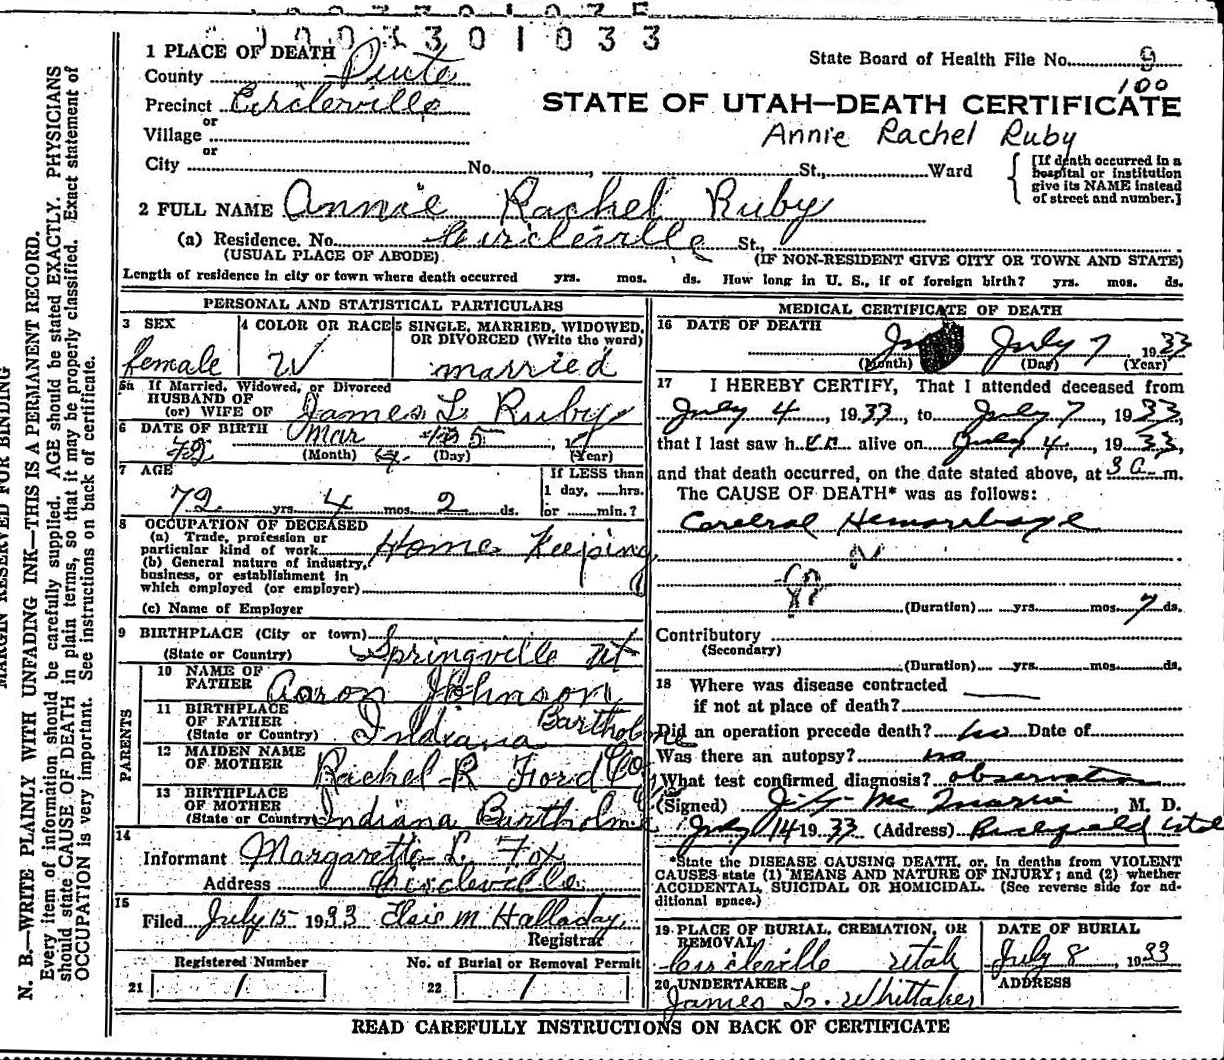 0003301033
1 PLACE OF DEATH
State Board of Health File No. 9
County Piute
100
Precinct Circleville
STATE OF UTAH—DEATH CERTIFICATE
or
Annie Rachel Ruby
Village
or
City No. , St., Ward
[If death occurred in a hospital or institution give its NAME instead of street and number.]
2 FULL NAME Annie Rachel Ruby
(a) Residence. No. Circleville St.,
(USUAL PLACE OF ABODE) (IF NON-RESIDENT GIVE CITY OR TOWN AND STATE)
Length of residence in city or town where death occurred yrs. mos. ds. How long in U. S., if of foreign birth? yrs. mos. ds.
PERSONAL AND STATISTICAL PARTICULARS
3 SEX female
4 COLOR OR RACE W
5 SINGLE, MARRIED, WIDOWED, OR DIVORCED (Write the word) married
5a If Married, Widowed, or Divorced
HUSBAND OF
(or) WIFE OF James L Ruby
6 DATE OF BIRTH Mar 5
(Month) (Day) (Year)
7 AGE
If LESS than
1 day, hrs.
72 yrs. 4 mos. 2 ds. or min.?
8 OCCUPATION OF DECEASED
(a) Trade, profession or
particular kind of work Home Keeping
(b) General nature of industry,
business, or establishment in
which employed (or employer)
(c) Name of Employer
9 BIRTHPLACE (City or town)
(State or Country) Springville Ut
PARENTS
10 NAME OF
FATHER Aaron Johnson
11 BIRTHPLACE
OF FATHER
(State or Country) Indiana Bartholomew
12 MAIDEN NAME
OF MOTHER Rachel R Ford Co
13 BIRTHPLACE
OF MOTHER
(State or Country) Indiana Bartholm
14
Informant Margarette L. Fox
Address Circleville
15
Filed July 15 1933 Elsie M Halladay
Registrar
Registered Number No. of Burial or Removal Permit
21 1 22 1
MEDICAL CERTIFICATE OF DEATH
16 DATE OF DEATH
July 7 1933
(Month) (Day) (Year)
17 I HEREBY CERTIFY, That I attended deceased from
July 4, 1933, to July 7, 1933,
that I last saw her alive on July 4, 1933,
and that death occurred, on the date stated above, at 3 a m.
The CAUSE OF DEATH* was as follows:
Cerebral Hemorrhage
(Duration) yrs. mos. 7 ds.
Contributory
(Secondary)
(Duration) yrs. mos. ds.
18 Where was disease contracted
if not at place of death?
Did an operation precede death? no Date of
Was there an autopsy? no
What test confirmed diagnosis? observation
(Signed) M. D.
July 14 1933 (Address) Richfield Utah
*State the DISEASE CAUSING DEATH, or, in deaths from VIOLENT
CAUSES state (1) MEANS AND NATURE OF INJURY; and (2) whether
ACCIDENTAL, SUICIDAL OR HOMICIDAL. (See reverse side for ad-
ditional space.)
19 PLACE OF BURIAL, CREMATION, OR
REMOVAL
Circleville Utah
DATE OF BURIAL
July 8, 1933
20 UNDERTAKER
James L. Whittaker
ADDRESS
READ CAREFULLY INSTRUCTIONS ON BACK OF CERTIFICATE
MARGIN RESERVED FOR BINDING
N. B.—WRITE PLAINLY WITH UNFADING INK—THIS IS A PERMANENT RECORD.
Every item of information should be carefully supplied. AGE should be stated EXACTLY. PHYSICIANS
should state CAUSE OF DEATH in plain terms, so that it may be properly classified. Exact statement of
OCCUPATION is very important. See instructions on back of certificate.